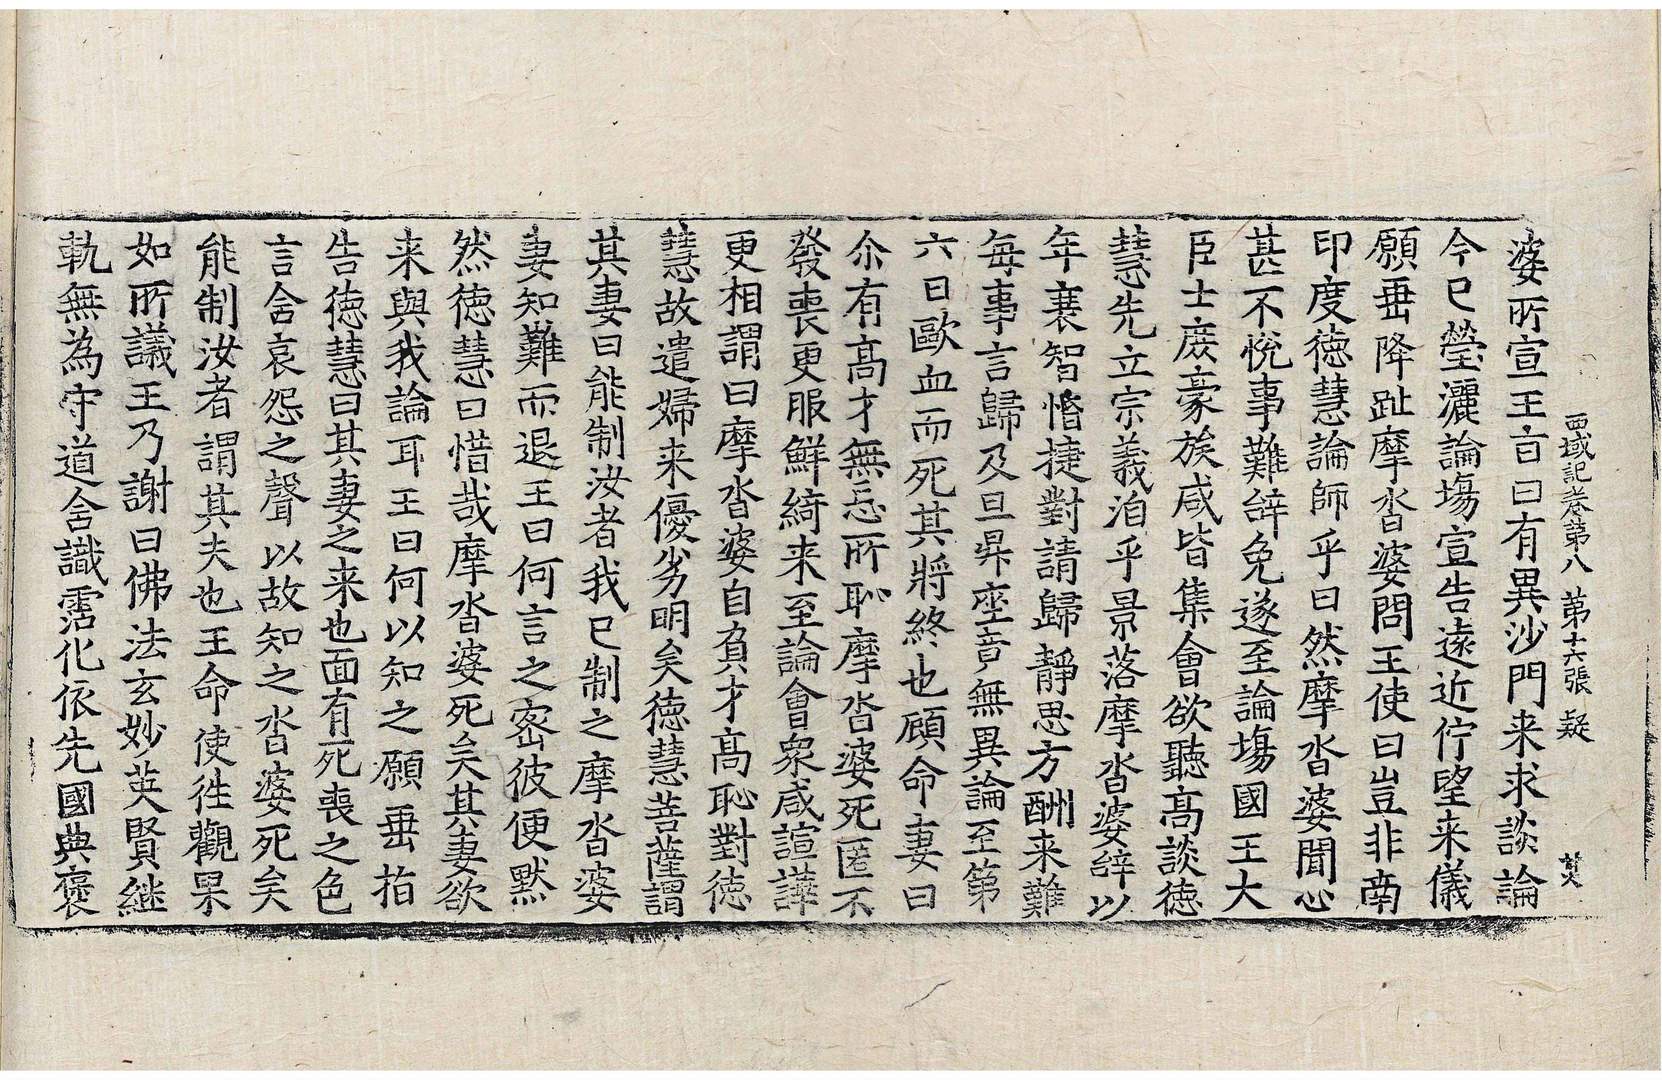 西域記卷第八 第十六張 疑
婆所宣王言曰有異沙門来求談論
今已瑩灑論場宣告遠近佇望来儀
願垂降趾摩沓婆問王使曰豈非南
印度德慧論師乎曰然摩沓婆聞心
甚不悅事難辭免遂至論場國王大
臣士庶豪族咸皆集會欲聽髙談德
慧先立宗義洎乎景落摩沓婆辝以
年衰智惛捷對請歸靜思方酬来難
每事言歸及旦昇座竟無異論至第
六日歐血而死其將終也顧命妻曰
尒有髙才無忘所恥摩沓婆死匿不
發喪更服鮮綺来至論會衆咸諠譁
更相謂曰摩沓婆自負才髙恥對德
慧故遣婦来優劣明矣德慧菩薩謂
其妻曰能制汝者我已制之摩沓婆
妻知難而退王曰何言之密彼便默
然德慧曰惜哉摩沓婆死矣其妻欲
来與我論耳王曰何以知之願垂指
告德慧曰其妻之来也面有死喪之色
言含哀怨之聲以故知之沓婆死矣
能制汝者謂其夫也王命使徃觀果
如所議王乃謝曰佛法玄妙英賢継
軌無為守道含識霑化依先國典襃